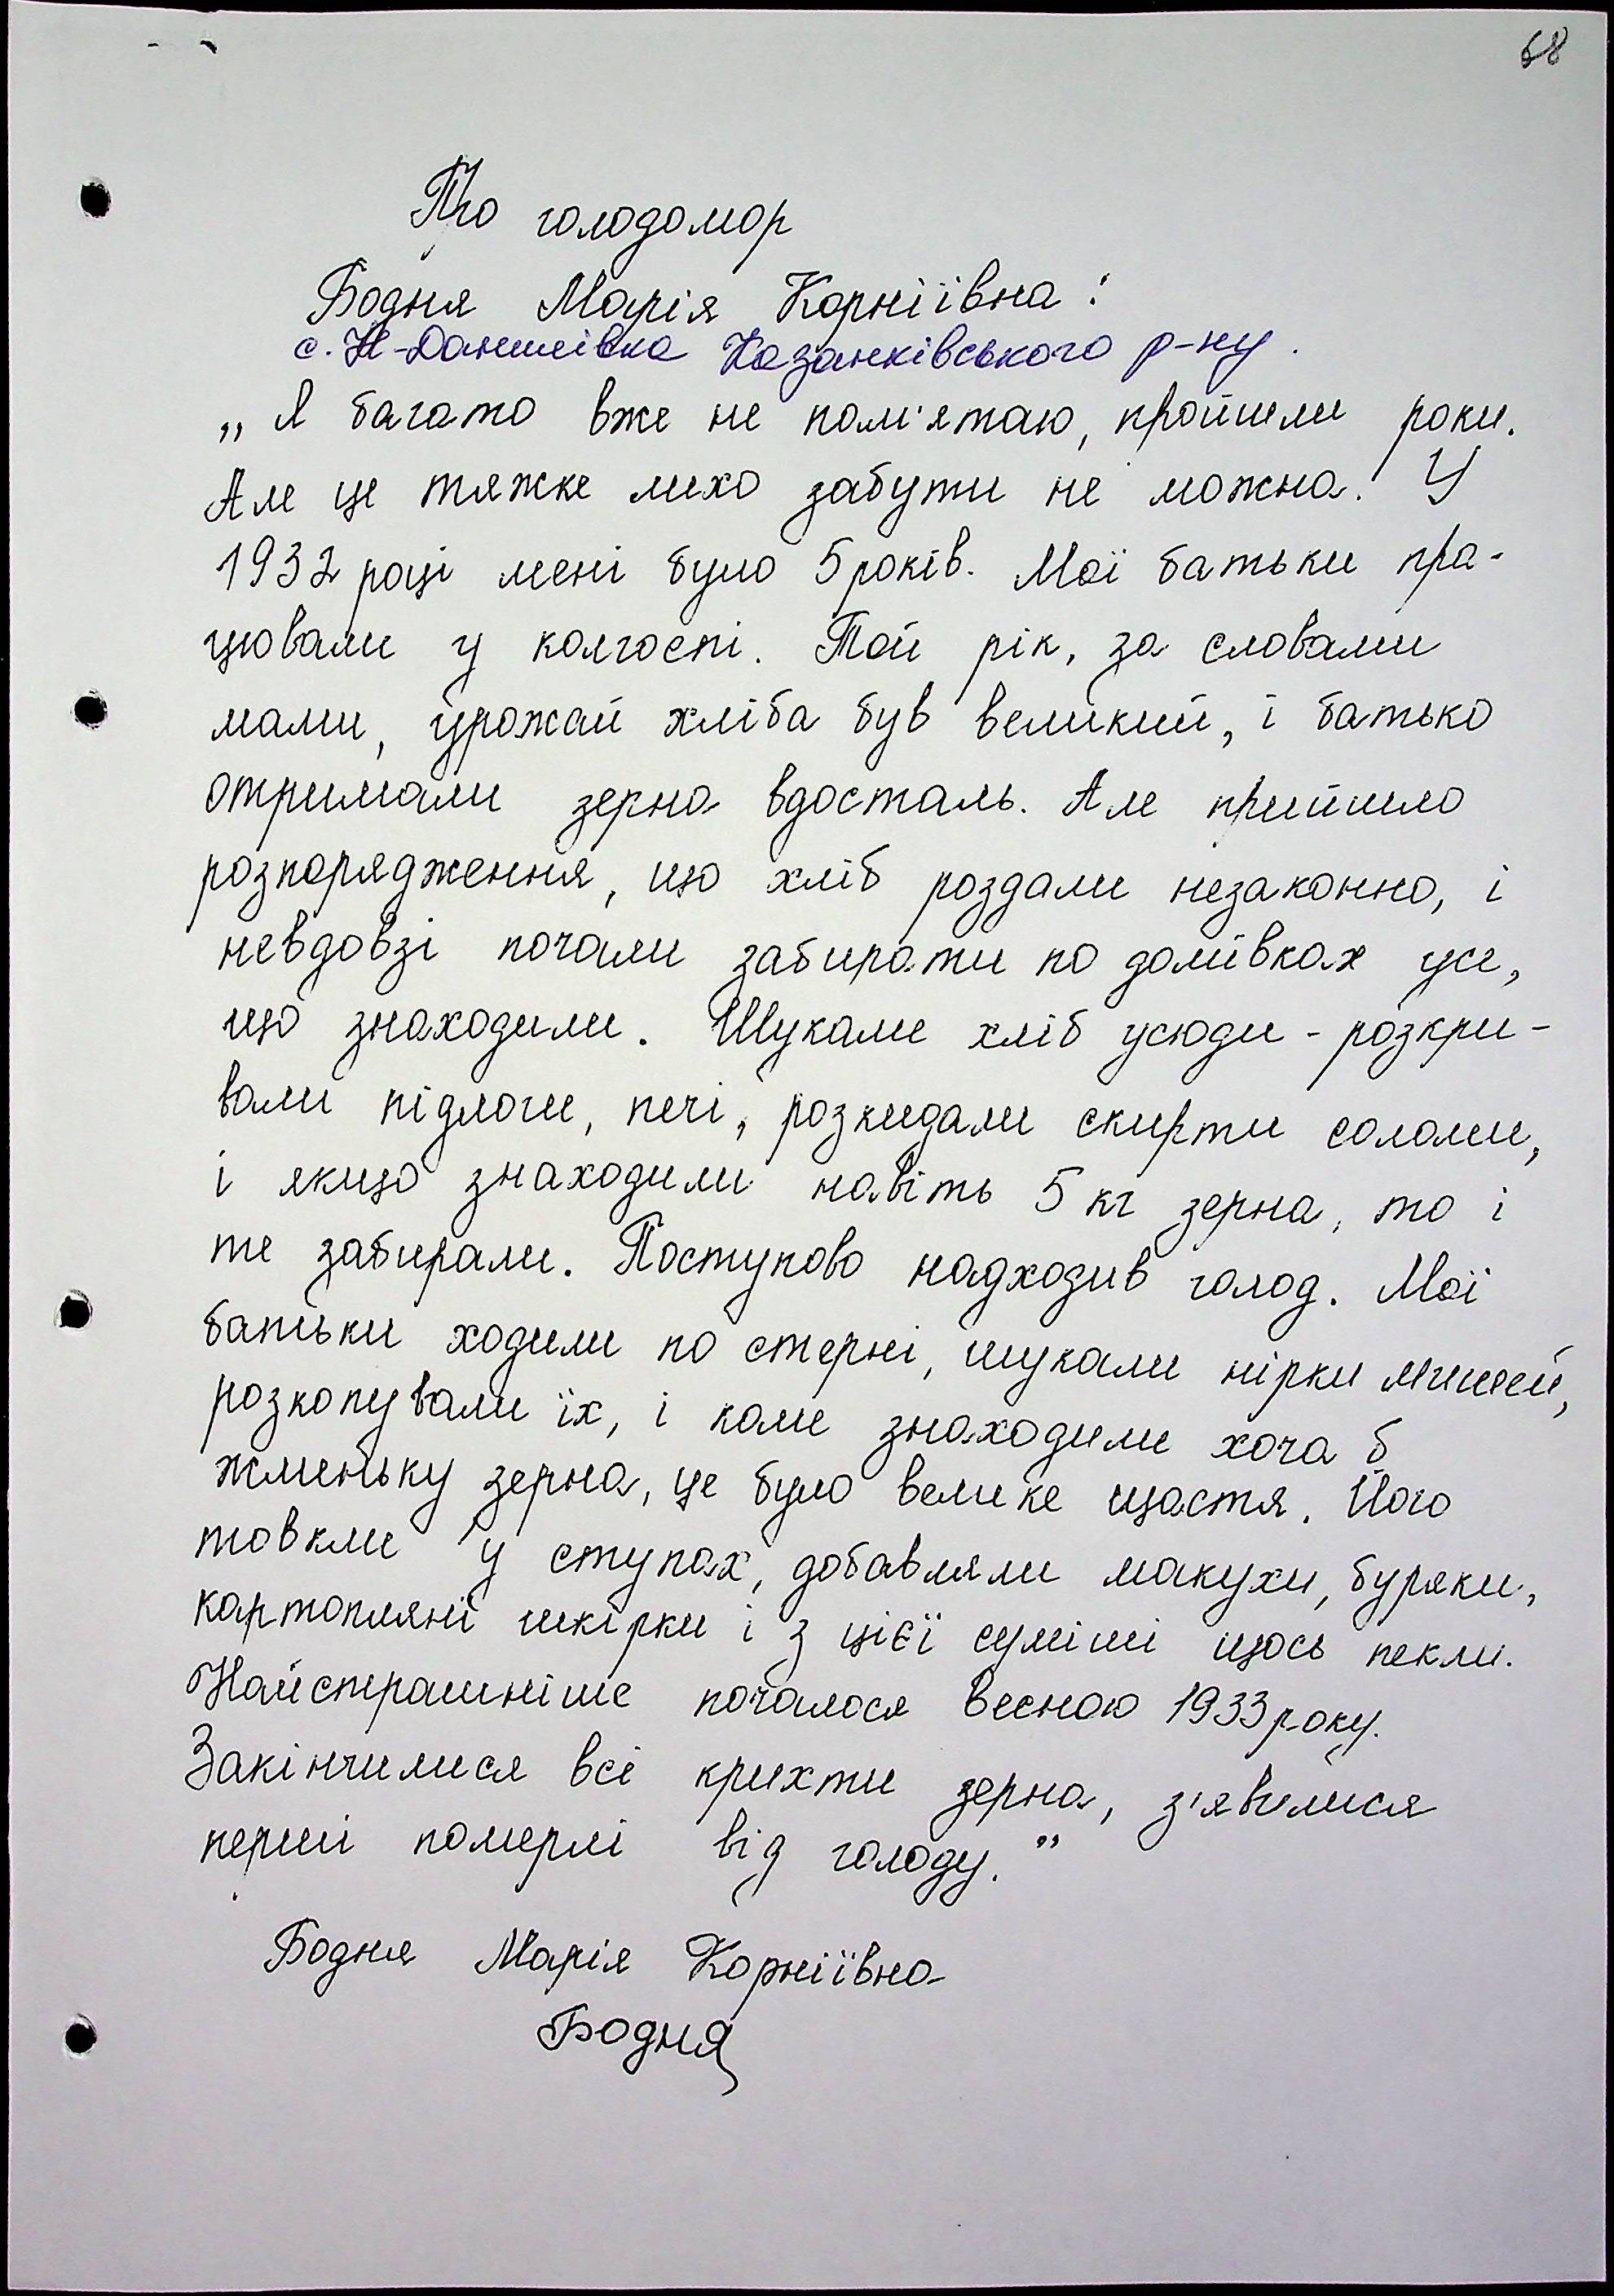 68
Про голодомор
Бодня Марія Корніївна:
с. Н-Данилівка Казанківського р-ну.
„Я багато вже не пам'ятаю, пройшли роки.
Але це тяжке лихо забути не можна. У
1932 році мені було 5 років. Мої батьки пра-
цювали у колгоспі. Той рік, за словами
мами, урожай хліба був великий, і батько
отримали зерна вдосталь. Але прийшло
розпорядження, що хліб роздали незаконно, і
невдовзі почали забирати по домівках усе,
що знаходили. Шукали хліб усюди - розкри-
вали підлоги, печі, розкидали скирти соломи,
і якщо знаходили навіть 5 кг зерна, то і
те забирали. Поступово надходив голод. Мої
батьки ходили по стерні, шукали нірки мишей,
розкопували їх, і коли знаходили хоча б
жменьку зерна, це було велике щастя. Його
товкли у ступах, добавляли макухи, буряки,
картопляні шкірки і з цієї суміші щось пекли.
Найстрашніше почалося весною 1933 року.
Закінчилися всі крихти зерна, з'явилися
перші померлі від голоду."
Бодня Марія Корніївна
Бодня